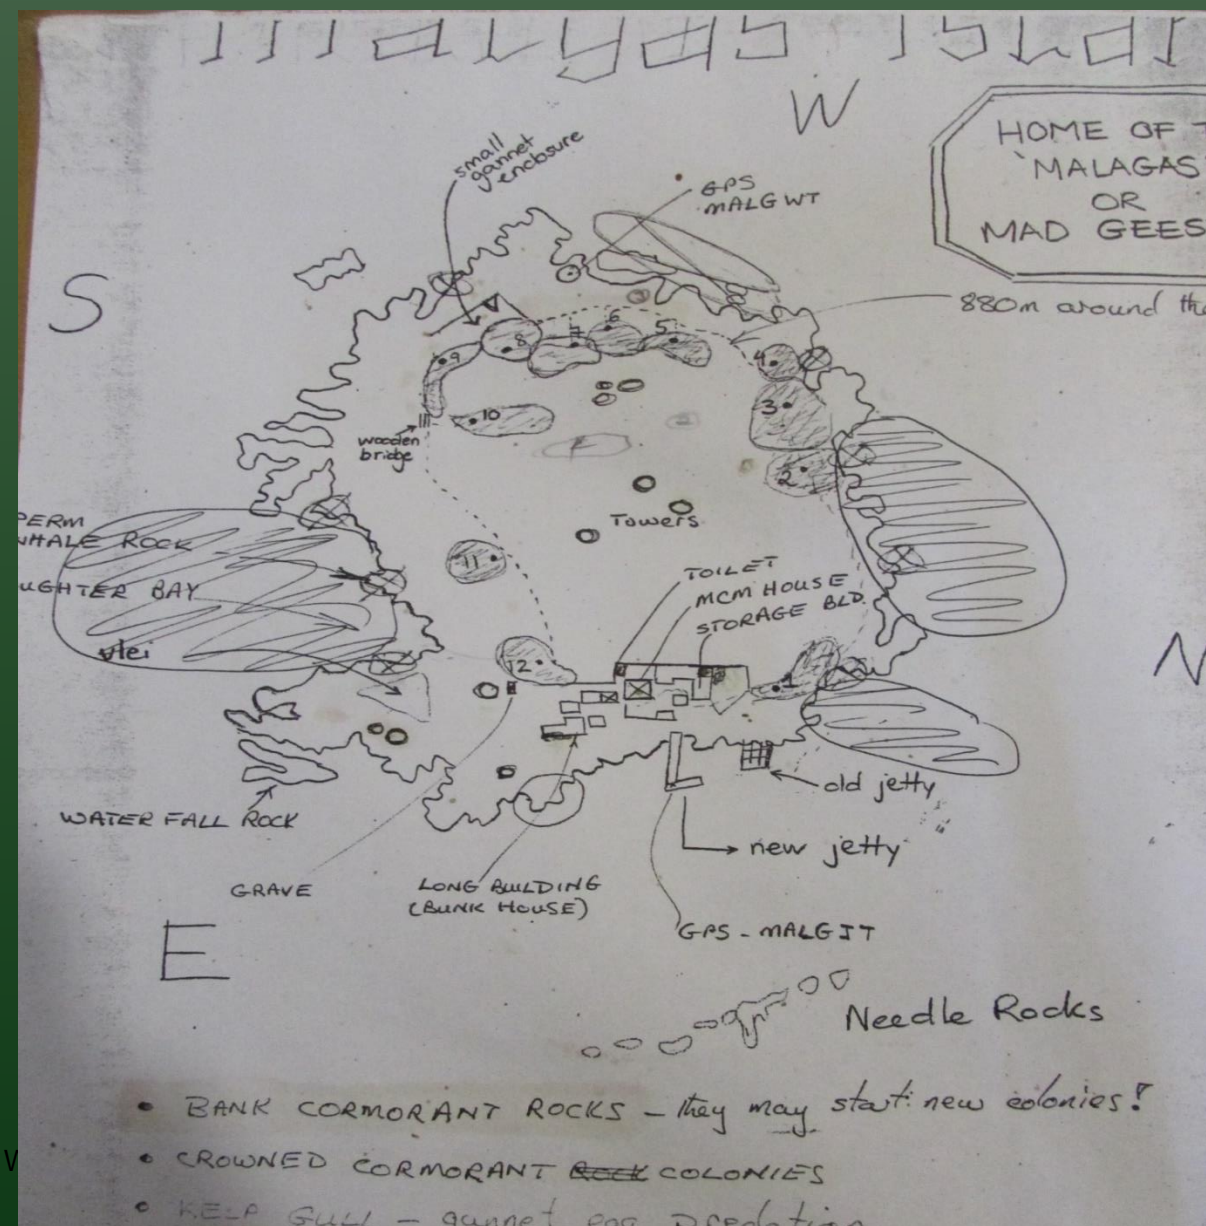 malgas Islan
W
HOME OF T
'MALAGAS'
OR
MAD GEES
small
gannet
enclosure
GPS
MALGWT
S
880m around the
6
5
8
9
4
3
10
wooden
bridge
2
Towers
PERM
WHALE ROCK
UGHTER BAY
11
TOILET
MCM HOUSE
STORAGE BLD.
vlei
12
1
N
old jetty
WATER FALL ROCK
new jetty
GRAVE
LONG BUILDING
(BUNK HOUSE)
GPS - MALGJT
E
Needle Rocks
• BANK CORMORANT ROCKS – they may start new colonies!
• CROWNED CORMORANT ROCK COLONIES
• KELP GULL – gannet egg predation
W